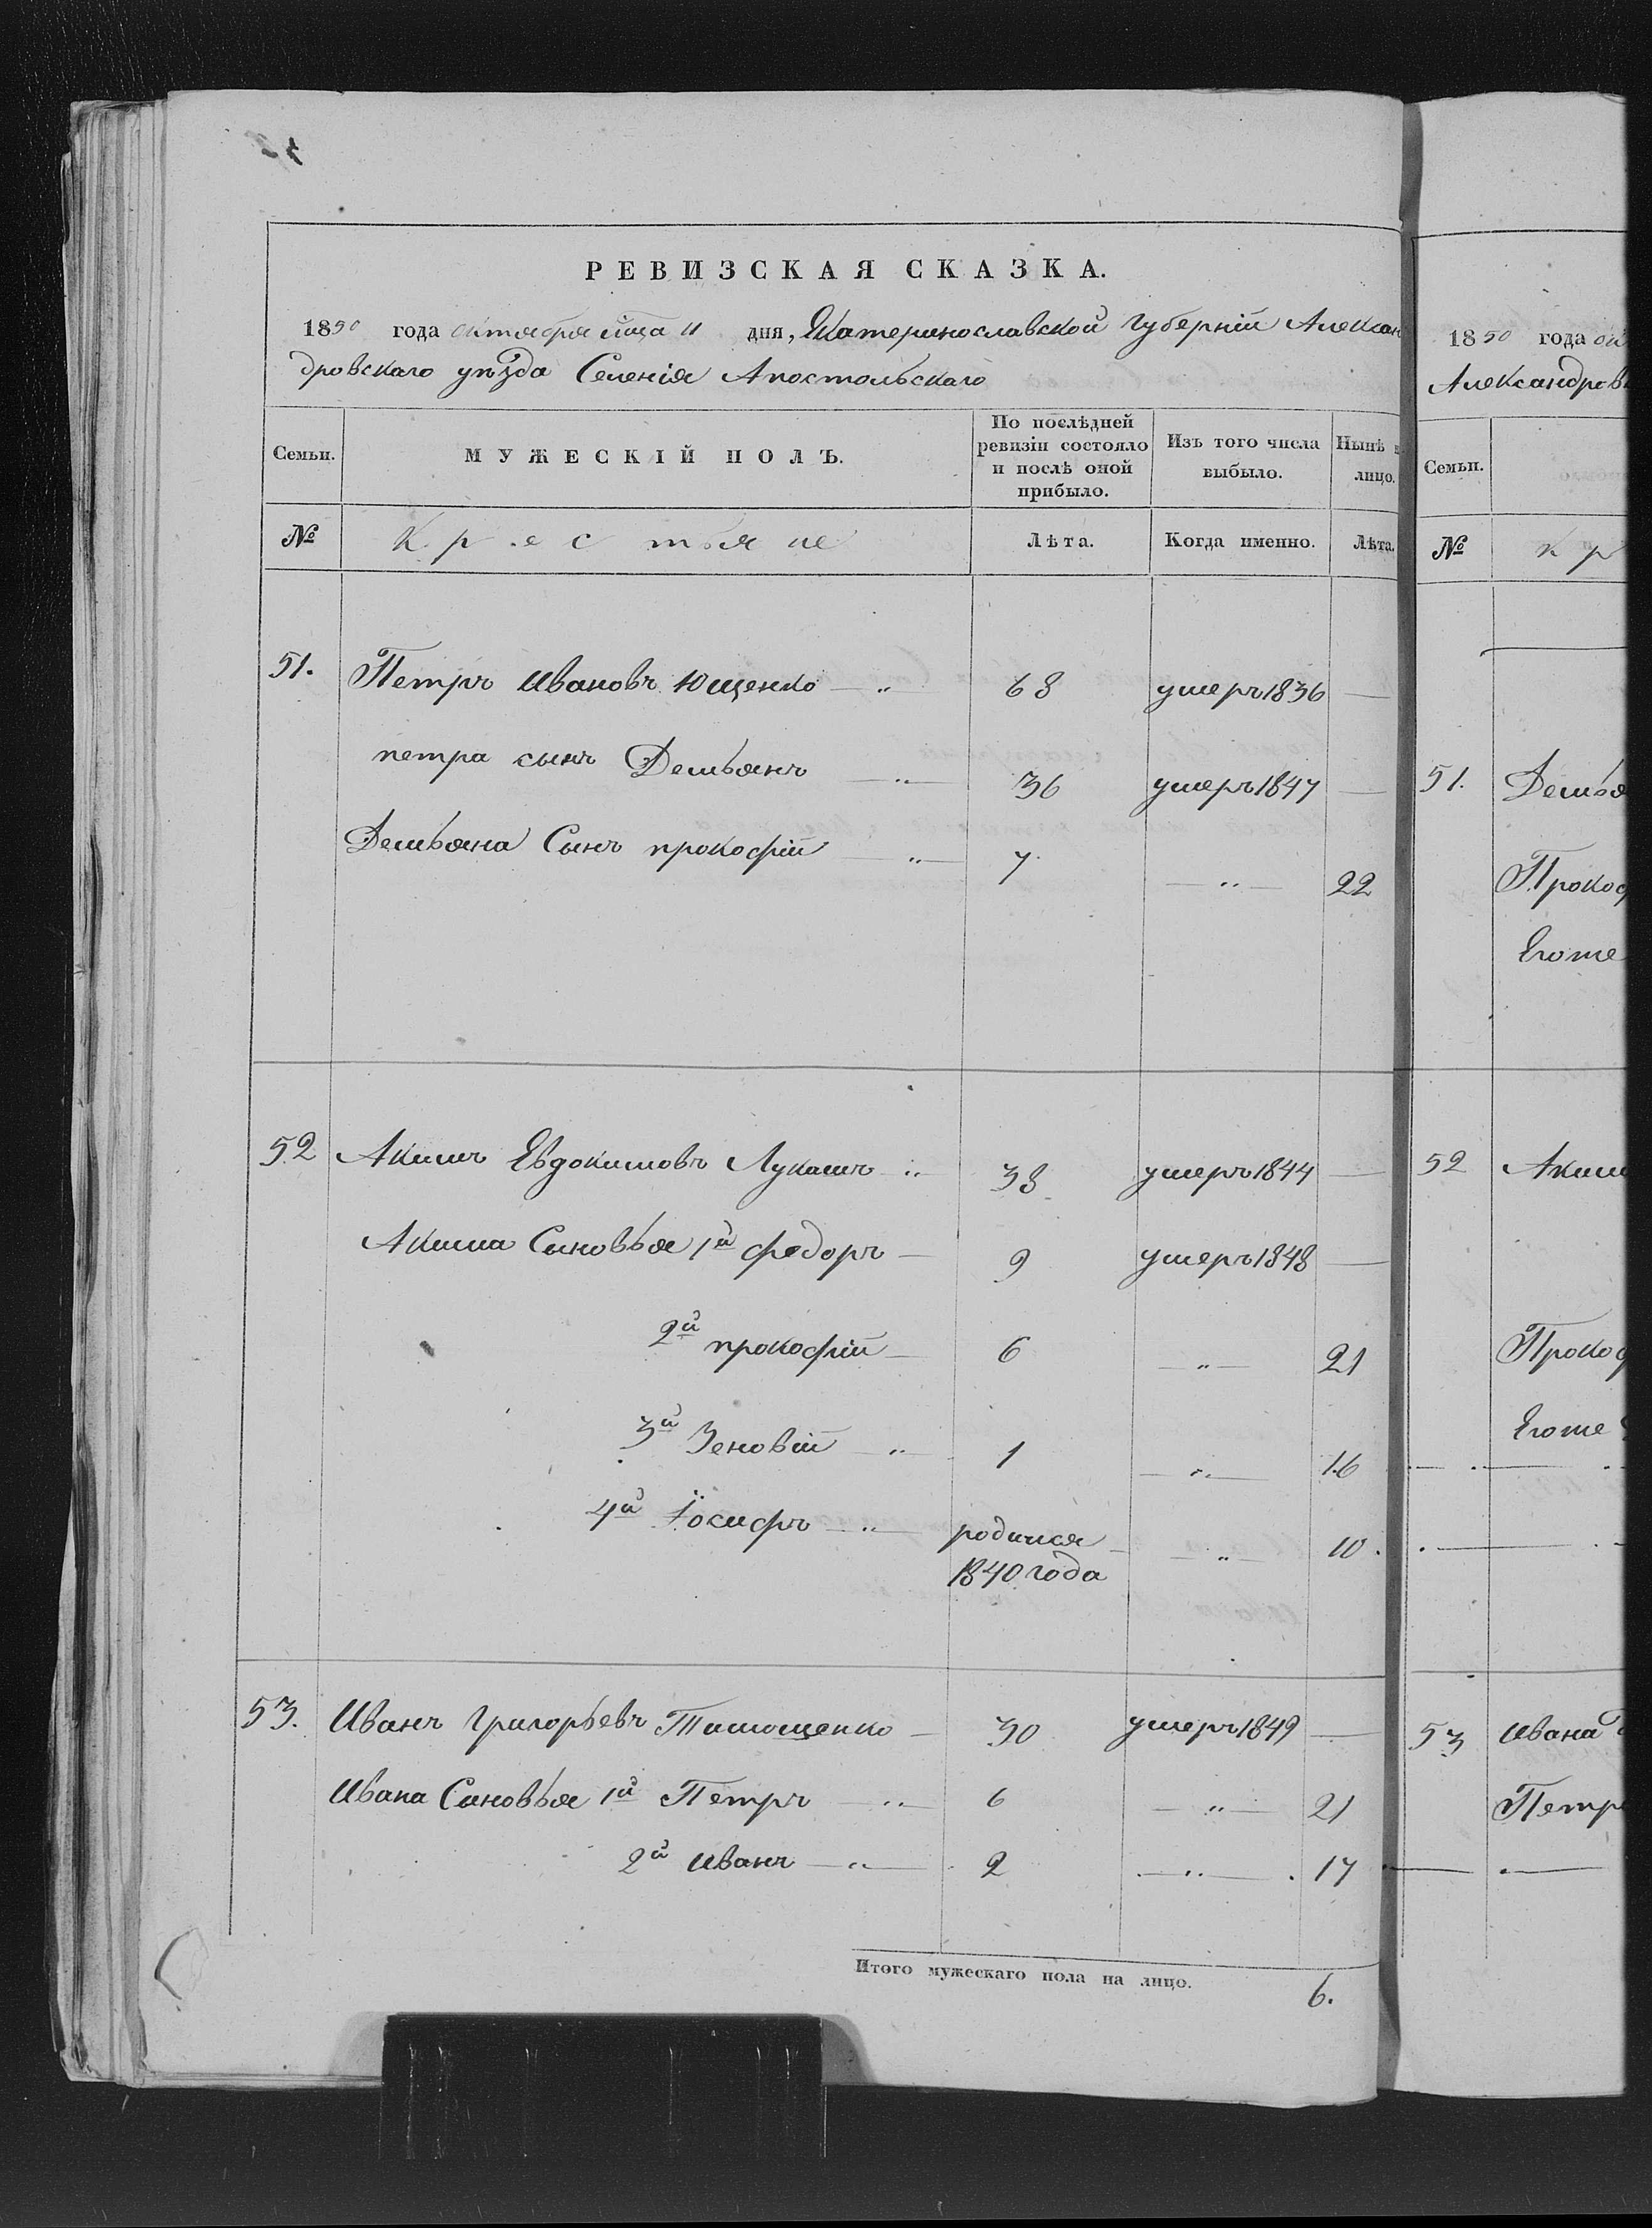 РЕВИЗСКАЯ СКАЗКА.
1850 года октября мца 11 дня, Екатеринославской губерніи Алексан
дровскаго уѣзда Селенія Апостольскаго
Семьи.
МУЖЕСКІЙ ПОЛЪ.
По послѣдней ревизіи состояло и послѣ оной прибыло.
Изъ того числа выбыло.
Нынѣ
лицо.
№ Крестьяне Лѣта. Когда именно. Лѣта.
51. Петръ Ивановъ Ющенко — „ 68 умеръ 1836 —
петра сынъ Демьянъ — „ — 36 умеръ 1847 —
Демьяна Сынъ прокофій — „ — 7 — „ — 22
52 Акимъ Евдокимовъ Лукашъ „ 38 умеръ 1844 —
Акима Сыновья 1й федоръ — 9 умеръ 1848 —
2й прокофій — 6 — „ — 21
3й Зеновій „ — 1 — „ — 16
4й Іосифъ — „ — родился — „ — 10.
1840 года
53. Иванъ Григорьевъ Тимощенко — 30 умеръ 1849 —
Ивана Сыновья 1й Петръ — „ — 6 — „ — 21
2й Иванъ — „ — 2 — „ — 17
Итого мужескаго пола на лицо. 6.
1850 года ок
Александров
Семьи.
№ Кр
51. Демья
Прокоф
Егоже
52 Аким
Прокоф
Егоже
53 Ивана
Петр